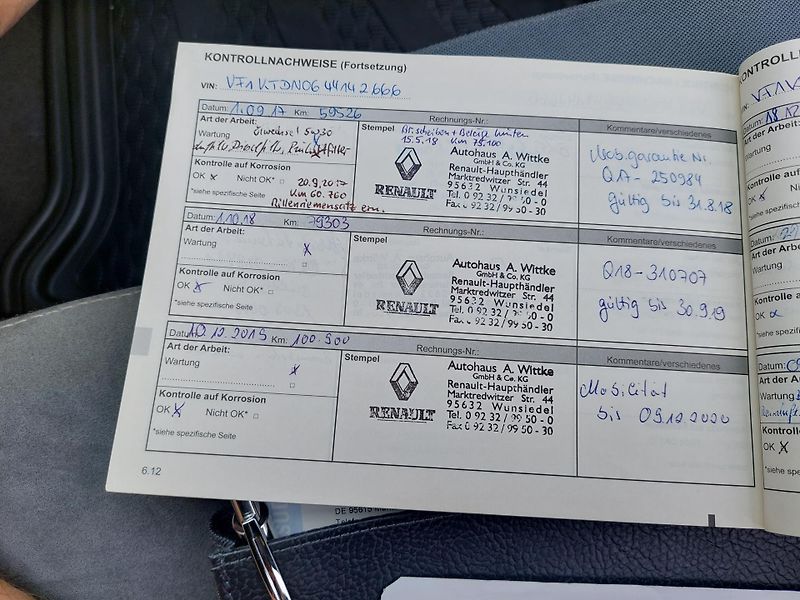 KONTROLLNACHWEISE (Fortsetzung)
VIN: VF1KTDN0644142666
Datum: 1.09.17 Km: 59526 Rechnungs-Nr.:
Art der Arbeit: Ölwechsel 5W30
Wartung
Kontrolle auf Korrosion
OK x Nicht OK* □ 20.9.2017
*siehe spezifische Seite Km 60.760
Rillenriemensatz ern.
Stempel Br.scheiben + Beläge hinten
15.5.18 Km 75.100
Autohaus A. Wittke
GmbH & Co. KG
Renault-Haupthändler
Marktredwitzer Str. 44
95632 Wunsiedel
Tel. 0 92 32 / 99 50 - 0
Fax 0 92 32 / 99 50 - 30
RENAULT
Kommentare/verschiedenes
Mob.garantie Nr.
QA - 250984
gültig bis 31.8.18
Datum: 1.10.18 Km: 79303 Rechnungs-Nr.:
Art der Arbeit:
Wartung x
□
Kontrolle auf Korrosion
OK x Nicht OK* □
*siehe spezifische Seite
Stempel
Autohaus A. Wittke
GmbH & Co. KG
Renault-Haupthändler
Marktredwitzer Str. 44
95632 Wunsiedel
Tel. 0 92 32 / 99 50 - 0
Fax 0 92 32 / 99 50 - 30
RENAULT
Kommentare/verschiedenes
Q18-310707
gültig bis 30.9.19
Datum: 10.12.2019 Km: 100.900 Rechnungs-Nr.:
Art der Arbeit:
Wartung x
□
Kontrolle auf Korrosion
OK x Nicht OK* □
*siehe spezifische Seite
Stempel
Autohaus A. Wittke
GmbH & Co. KG
Renault-Haupthändler
Marktredwitzer Str. 44
95632 Wunsiedel
Tel. 0 92 32 / 99 50 - 0
Fax 0 92 32 / 99 50 - 30
RENAULT
Kommentare/verschiedenes
Mobilität
bis 09.12.2020
6.12
KONTROLLN
VIN:
Datum:
Art der Arbeit:
Wartung
Kontrolle a
OK x
*siehe spezif
Datum:
Art der Arb
Wartung
Kontrolle
OK
*siehe spezi
Datum:
Art der A
Wartung
Kontroll
OK x
*siehe sp
DE 95615